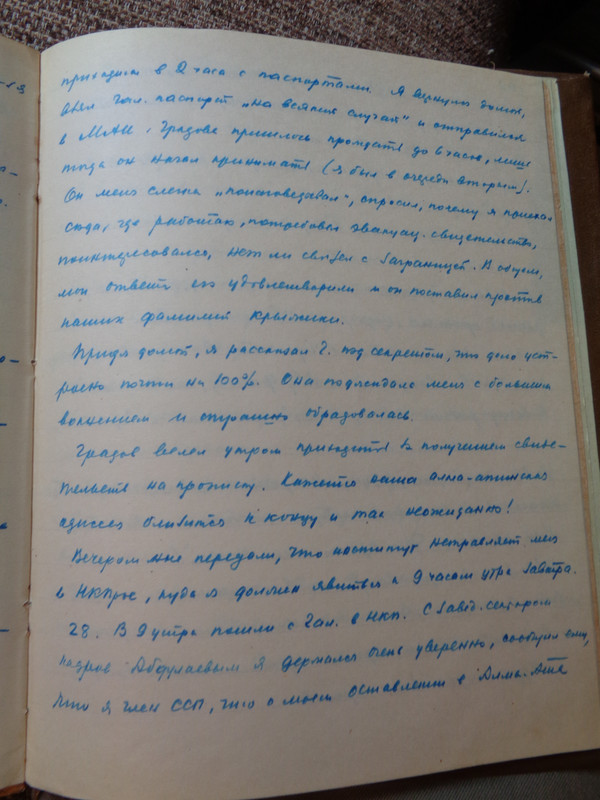 приходить в 2 часа с паспортами. Я вернулся домой,
взял Гал. паспорт „на всякий случай“ и отправился
в МАИ. Градова пришлось прождать до 6 часов, лишь
тогда он начал принимать (я был в очереди вторым).
Он меня слегка „поисповедовал“, спросил, почему я приехал
сюда, где работаю, потребовал эвакуац. свидетельство,
поинтересовался, нет ли связей с заграницей. В общем,
мои ответы его удовлетворили и он поставил против
наших фамилий крыжики.
Придя домой, я рассказал Г. под секретом, что дело уст-
роено почти на 100%. Она поджидала меня с большим
волнением и страшно обрадовалась.
Градов велел утром приходить за получением свиде-
тельств на прописку. Кажется наша алма-атинская
одиссея близится к концу и так неожиданно!
Вечером мне передали, что институт направляет меня
в НКПрос, куда я должен явиться к 9 часам утра завтра.
28. В 9 утра пошли с Гал. в НКП. С завед. сектором
кадров Абдулаевым я держался очень уверенно, сообщил ему,
что я член ССП, что о моем оставлении в Алма-Ате